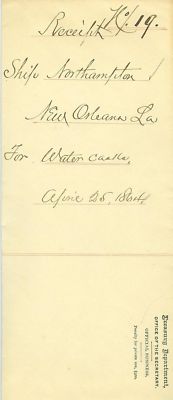 No. 19.
Receipt
Ship Northampton
New Orleans La
For Water casks,
April 25, 1864
Treasury Department,
OFFICE OF THE SECRETARY.
OFFICIAL BUSINESS.
Penalty for private use, $300.